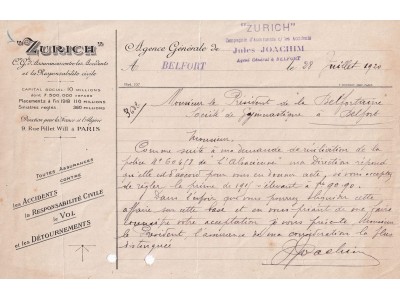 "ZURICH"
Cie Gle d'Assurances contre les Accidents
et la Responsabilité civile
CAPITAL SOCIAL 10 MILLIONS
dont 7.500.000 versés
Placements à Fin 1918 118 MILLIONS
Sinistres réglés 385 MILLIONS
Direction pour la France et l'Algérie
9, Rue Pillet-Will à PARIS
TOUTES ASSURANCES
CONTRE
les ACCIDENTS
la RESPONSABILITÉ CIVILE
le VOL
et les DÉTOURNEMENTS
Agence Générale de
A BELFORT
"ZURICH"
Compagnie d'Assurances contre les accidents
Jules JOACHIM
Agent Général à BELFORT
le 28 Juillet 1920
Monsieur le Président de la Belfortaine
Société de Gymnastique à Belfort
Monsieur
Comme suite à ma demande de résiliation de la
police No de "l'Alsacienne" ma Direction répond
qu'elle est d'accord pour vous en donner acte, si vous acceptez
de régler la prime de s'élevant à frs 90.90.
Dans l'espoir que vous pourrez liquider cette
affaire sur cette base et en vous priant de me faire
connaître votre acceptation je vous présente Monsieur
le Président, l'assurance de ma considération la plus
distinguée
J Joachim